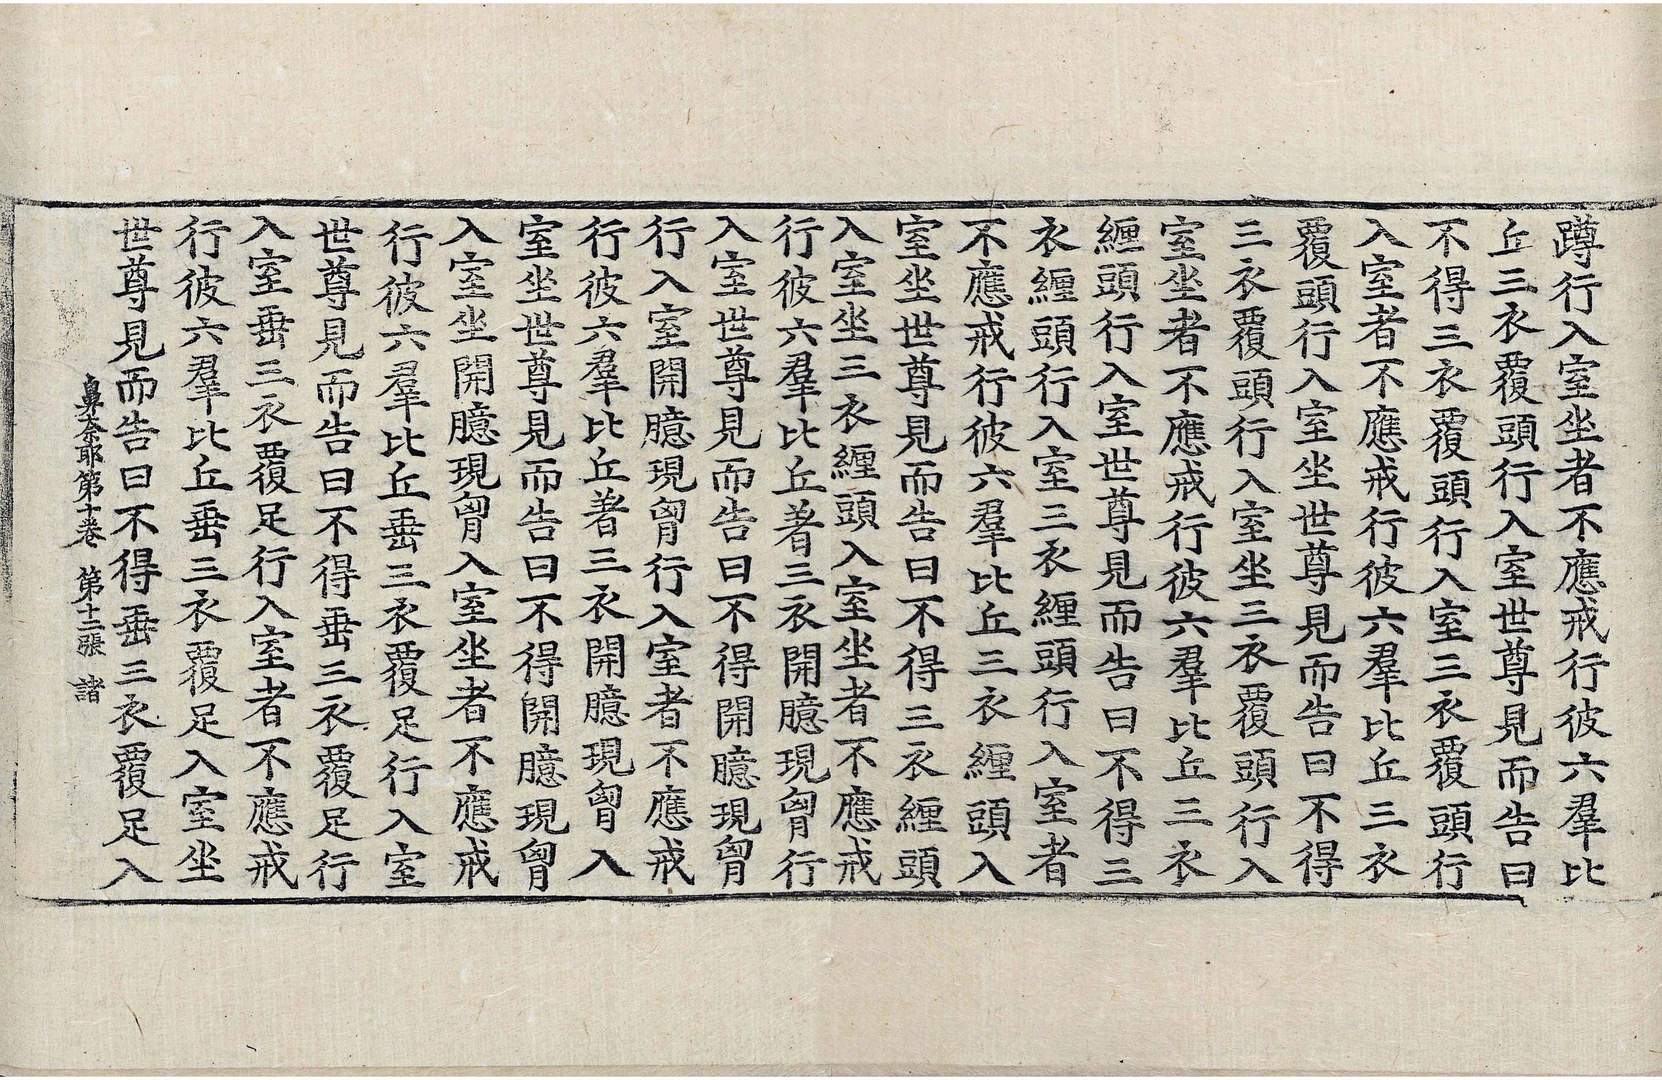 蹲行入室坐者不應戒行彼六羣比
丘三衣覆頭行入室世尊見而告曰
不得三衣覆頭行入室三衣覆頭行
入室者不應戒行彼六羣比丘三衣
覆頭行入室坐世尊見而告曰不得
三衣覆頭行入室坐三衣覆頭行入
室坐者不應戒行彼六羣比丘三衣
纏頭行入室世尊見而告曰不得三
衣纏頭行入室三衣纏頭行入室者
不應戒行彼六羣比丘三衣纏頭入
室坐世尊見而告曰不得三衣纏頭
入室坐三衣纏頭入室坐者不應戒
行彼六羣比丘著三衣開臆現胷行
入室世尊見而告曰不得開臆現胷
行入室開臆現胷行入室者不應戒
行彼六羣比丘著三衣開臆現胷入
室坐世尊見而告曰不得開臆現胷
入室坐開臆現胷入室坐者不應戒
行彼六羣比丘垂三衣覆足行入室
世尊見而告曰不得垂三衣覆足行
入室垂三衣覆足行入室者不應戒
行彼六羣比丘垂三衣覆足入室坐
世尊見而告曰不得垂三衣覆足入
鼻奈耶第十卷 第十二張 諸